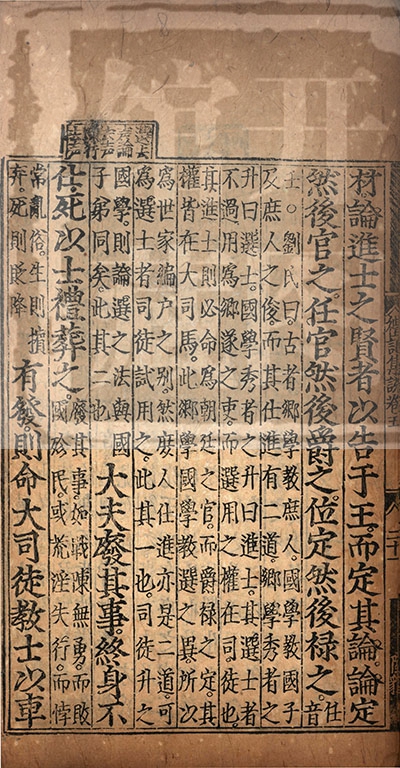 材論進士之賢者以告于王。而定其論。論定
然後官之。任官然後爵之。位定然後禄之。任音
壬。劉氏曰。古者鄉學教庶人。國學教國子
及庶人之俊。而其仕進有二道。鄉學秀者之
升曰選士。國學秀者之升曰進士。其選士者
不過用爲鄉遂之吏。而選用之權在司徒也
其進士則必命爲朝廷之官。而爵禄之定。其
權皆在大司馬。此鄉學國學教選之異。所以
爲世家編户之别然庶人仕進亦是二道。可
爲選士者司徒試用之。此其一也。司徒升之
國學。則論選之法與國
子弟同矣。此其二也
大夫廢其事。終身不
仕。死以士禮葬之。
廢其事。如戰陳無勇。而敗
國殄民。或荒淫失行。而悖
常亂俗。生則擯
弃。死則貶降
有發。則命大司徒教士以車
禮記集說卷五